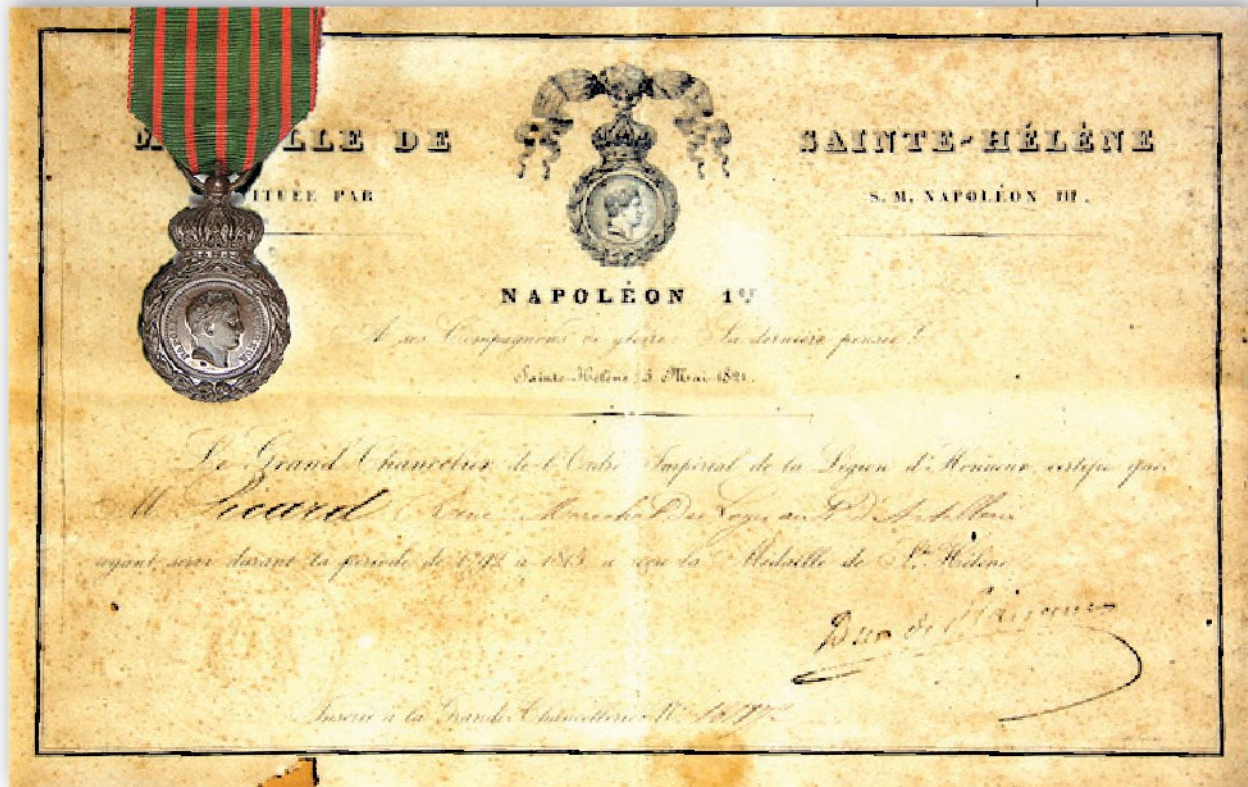 M LLE DE SAINTE-HÉLÈNE
ITUÉE PAR S. M. NAPOLÉON III.
NAPOLÉON 1er
A ses Compagnons de gloire. Sa dernière pensée!
Sainte-Hélène, 5 Mai 1821.
Le Grand Chancelier de l'Ordre Impérial de la Légion d'Honneur, certifie que
M. René Maréchal des Logis au d'Artillerie
ayant servi durant la période de 1792 à 1815, a reçu la Médaille de Ste Hélène.
Duc de
Inscrit à la Grande Chancellerie No